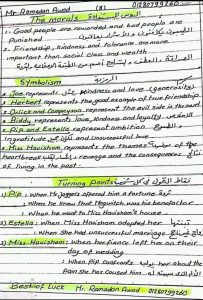 Mr. Ramadan Awad (8) 01280799260
The morals الدروس المستفادة
1. Good people are rewarded and bad people are
Punished
2. Friendship, kindness and tolerance are more
important than social class and wealth
Symbolism الرمزية
Joe represents kindness and love (generosity)
Herbert represents the good example of true friendship
Orlick and Compeyson represent the evil side in the novel
Biddy represents love, kindness and loyalty
Pip and Estella represent ambition الطموح
ingratitude and unsuccessful love
Miss Havisham, represents the themes of
heartbreak, revenge and the consequences
of living in the past.
Turning Points نقاط التحول
1) Pip: when Mr. Jaggers offered him a fortune ثروة
When he knew that Magwitch was his benefactor
When he went to Miss Havisham's house
2) Estella: When Miss Havisham adopted her تبنتها
When she had unsuccessful marriage
3) Miss Havisham: When her fiance left her on their
day of wedding
When Pip confronts her about the
Pain she has caused him.
Best of Luck Mr. Ramadan Awad 01280799260